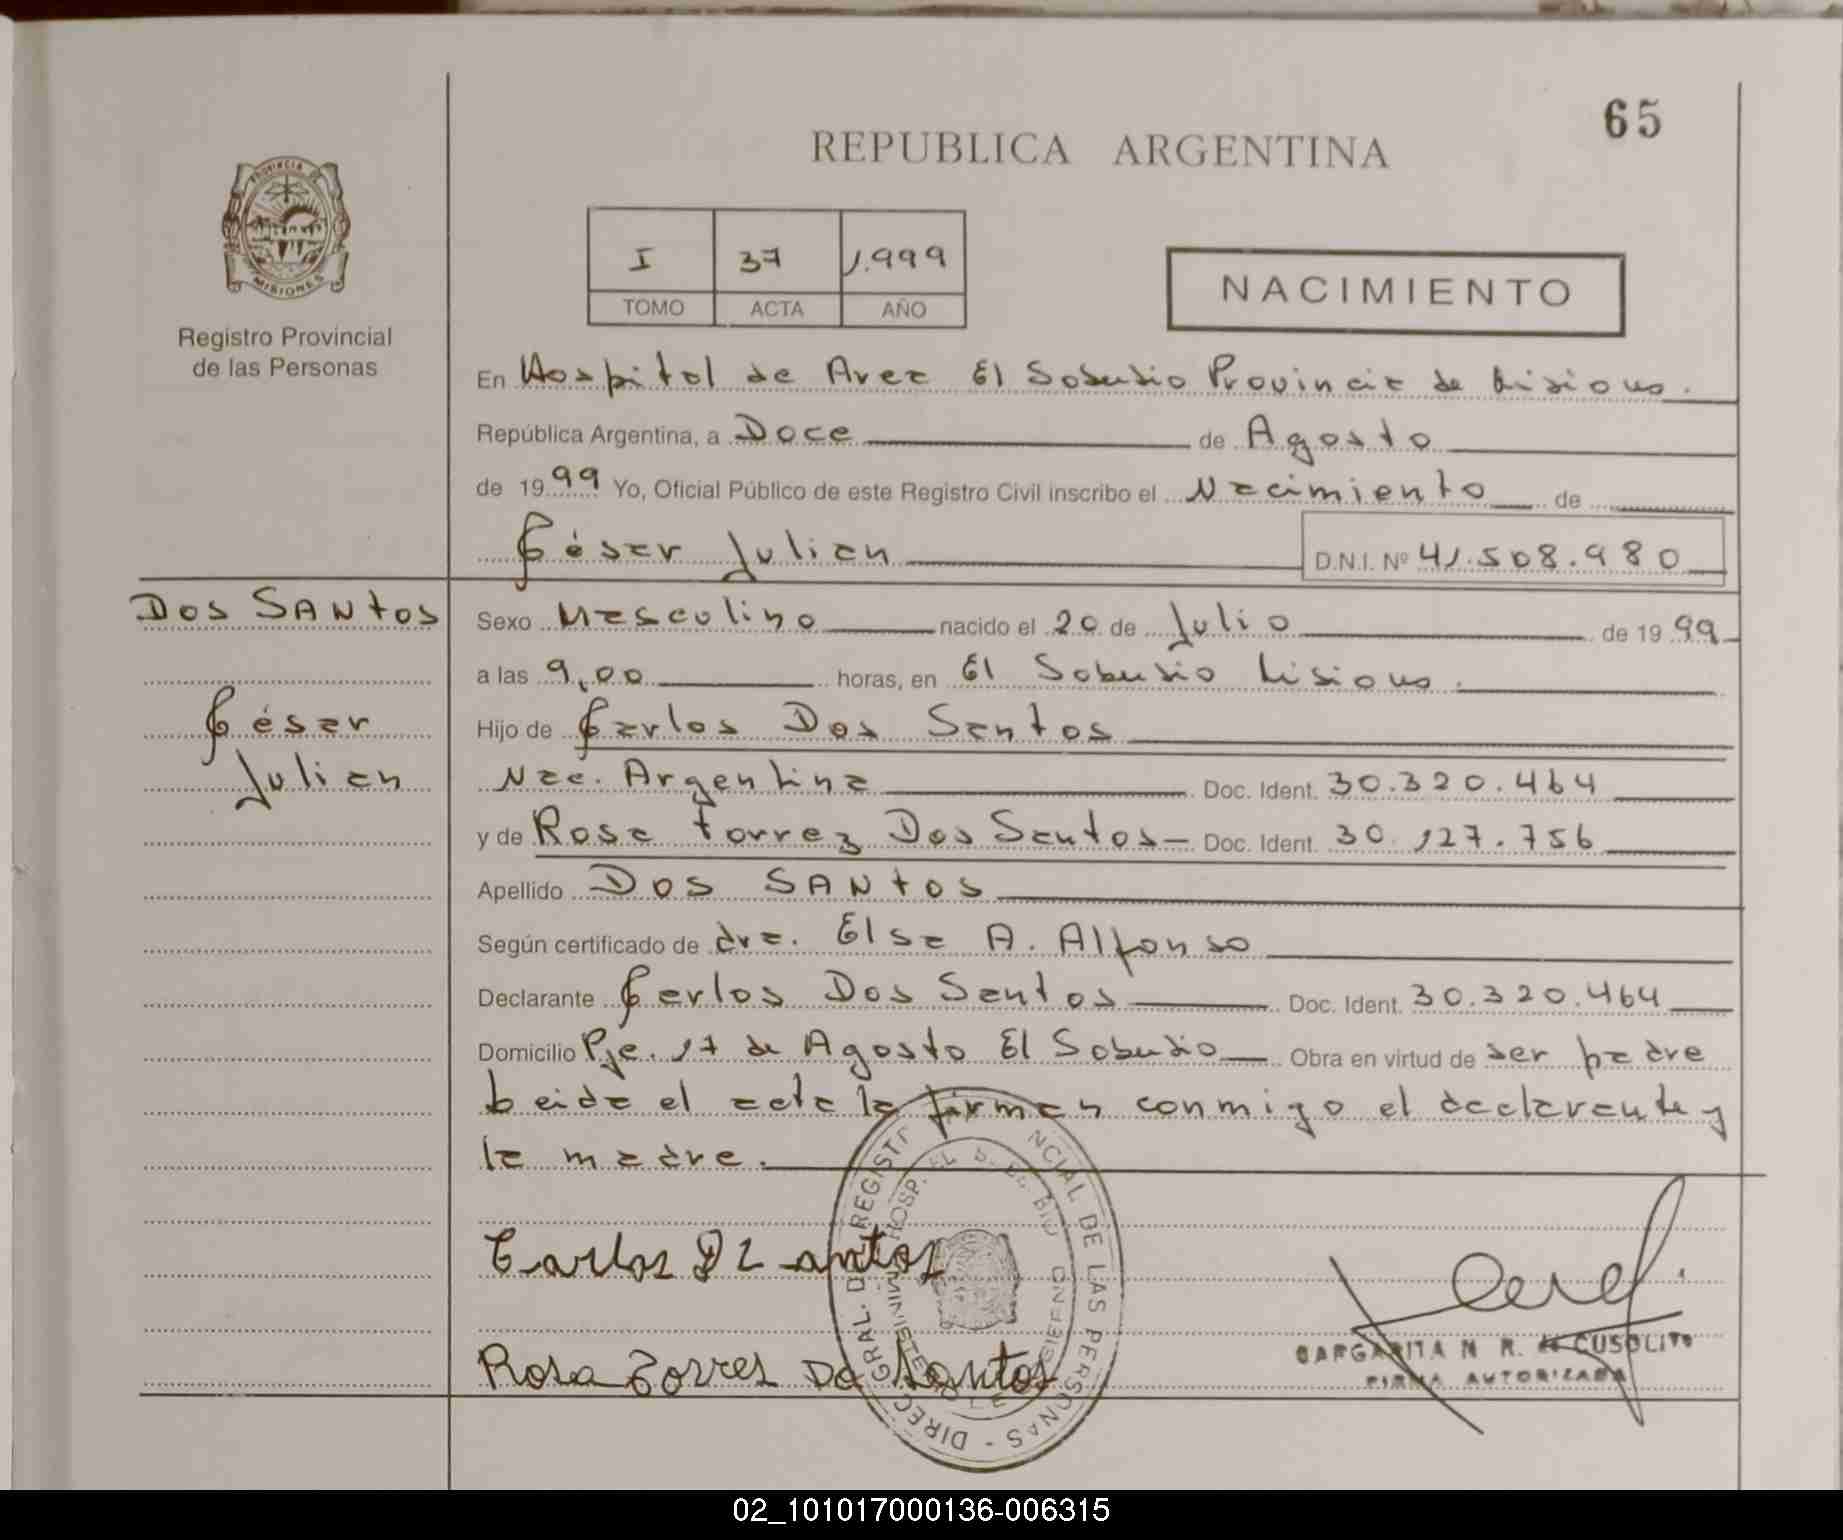 65
REPUBLICA ARGENTINA
PROVINCIA DE
MISIONES
Registro Provincial
de las Personas
I 37 1.999
TOMO ACTA AÑO
NACIMIENTO
En Hospital de Area El Soberbio Provincia de Misiones.
República Argentina, a Doce de Agosto
de 1999 Yo, Oficial Público de este Registro Civil inscribo el Nacimiento de
César Julian D.N.I. Nº 41.508.980
DOS SANTOS
César
Julian
Sexo Masculino nacido el 20 de Julio de 1999
a las 9,00 horas, en El Soberbio Misiones.
Hijo de Carlos Dos Santos
Nac. Argentina Doc. Ident. 30.320.464
y de Rosa Torrez Dos Santos - Doc. Ident. 30.127.756
Apellido DOS SANTOS
Según certificado de dra. Elsa A. Alfonso
Declarante Carlos Dos Santos Doc. Ident. 30.320.464
Domicilio Pje. 17 de Agosto El Soberbio Obra en virtud de ser padre
Leida el acta la firman conmigo el declarante y
la madre.
Carlos D Santos
Rosa Torres Do Santos
DIREC. GRAL. D REGISTR NCIAL DE LAS PERSONAS
HOSP.
CUSOLITO
FIRMA AUTORIZADA
02_101017000136-006315